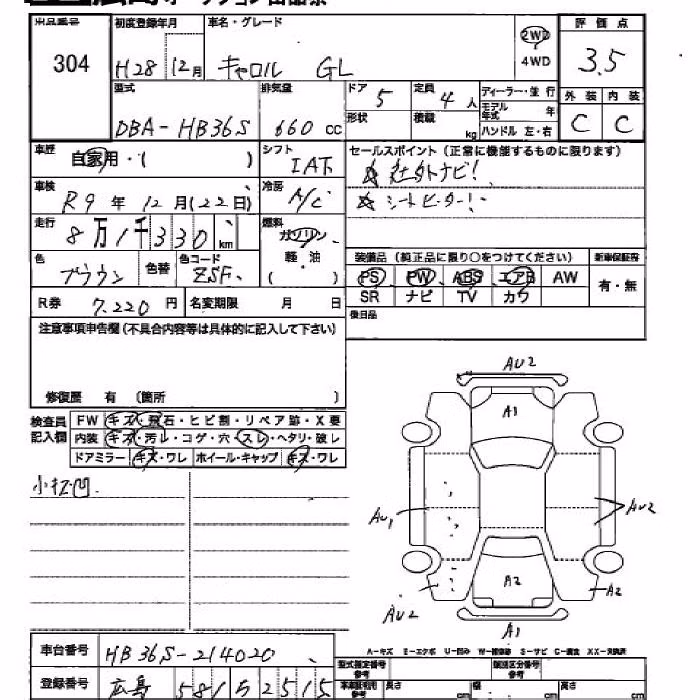 オークション出品票
出品番号 初度登録年月 車名・グレード 評価点
304 H28 12月 キャロル GL 2WD 4WD 3.5
型式 排気量 ドア 定員 ディーラー・並行 外装 内装
DBA-HB36S 660cc 5 4人 モデル年式 年 C C
形状 積載 kg ハンドル 左・右
車歴 自家用・( ) シフト IAT セールスポイント (正常に機能するものに限ります)
☆ 社外ナビ!
車検 R9年12月(22日) 冷房 A/C ☆ シートヒーター!
走行 8万1千330km 燃料 ガソリン 軽・油 ( )
色 ブラウン 色替 色コード ZSF 装備品 (純正品に限り〇をつけてください) 新車保証書
PS PW ABS エアB AW 有・無
R券 7.220円 名変期限 月 日 SR ナビ TV カワ
注意事項申告欄 (不具合内容等は具体的に記入して下さい) 後日品
修復歴 有 (箇所 )
検査員記入欄 FW キズ・飛石・ヒビ割・リペア跡・X要
内装 キズ・汚レ・コゲ・穴・スレ・ヘタリ・破レ
ドアミラー キズ・ワレ ホイール・キャップ キズ・ワレ
AU2
A1
小キズ凹
AU1 AU2
A2 A2
AU2
A1
A-キズ E-エクボ U-凹み W-補修跡 S-サビ C-腐食 XX-交換済
車台番号 HB36S-214020 型式指定番号 参考 類別区分番号 参考
登録番号 広島 581 も 2515 車庫証明用 参考 長さ cm 幅 cm 高さ cm